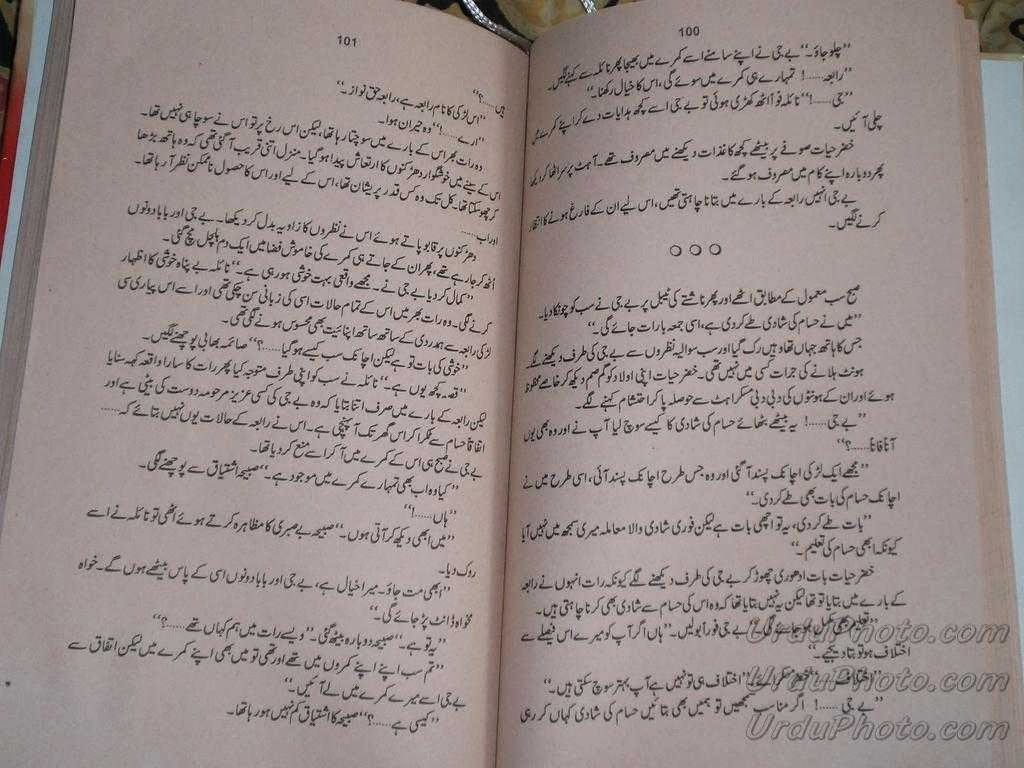 100
”چلو جاؤ۔“ بے جی نے اپنے سامنے اسے کمرے میں بھیجا پھر نائلہ سے کہنے لگیں۔
”رابعہ......! تمہارے ہی کمرے میں سوئے گی، اس کا خیال رکھنا۔“
”جی......!“ نائلہ فوراً اٹھ کھڑی ہوئی تو بے جی اسے کچھ ہدایات دے کر اپنے کمرے میں
چلی آئیں۔
خضر حیات صوفے پر بیٹھے کچھ کاغذات دیکھنے میں مصروف تھے۔ آہٹ پر سر اٹھا کر دیکھا
پھر دوبارہ اپنے کام میں مصروف ہو گئے۔
بے جی انہیں رابعہ کے بارے میں بتانا چاہتی تھیں، اس لیے ان کے فارغ ہونے کا انتظار
کرنے لگیں۔
○ ○ ○
صبح سب معمول کے مطابق اٹھے اور پھر ناشتے کی ٹیبل پر بے جی نے سب کو چونکا دیا۔
”میں نے حسام کی شادی طے کر دی ہے، اسی جمعہ بارات جائے گی۔“
جس کا ہاتھ جہاں تھا وہیں رک گیا اور سب سوالیہ نظروں سے بے جی کی طرف دیکھنے لگے۔
ہونٹ ہلانے کی جرات کسی میں نہیں تھی۔ خضر حیات اپنی اولاد کو گم صم دیکھ کر خاصے محظوظ
ہوئے اور ان کے ہونٹوں کی دبی دبی مسکراہٹ سے حوصلہ پا کر احتشام کہنے لگے۔
”بے جی......! یہ بیٹھے بٹھائے حسام کی شادی کا کیسے سوچ لیا آپ نے اور وہ بھی یوں
آناً فاناً......؟“
”مجھے ایک لڑکی اچانک پسند آ گئی اور وہ جس طرح اچانک پسند آئی، اسی طرح میں نے
اچانک حسام کی بات بھی طے کر دی۔“
”بات طے کر دی، یہ تو اچھی بات ہے لیکن فوری شادی والا معاملہ میری سمجھ میں نہیں آیا
کیونکہ ابھی حسام کی تعلیم۔“
خضر حیات بات ادھوری چھوڑ کر بے جی کی طرف دیکھنے لگے کیونکہ رات انہوں نے رابعہ
کے بارے میں بتایا تو تھا لیکن یہ نہیں بتایا تھا کہ وہ اس کی حسام سے شادی بھی کرنا چاہتی ہیں۔
”تعلیم بھی مکمل ہو جائے گی۔“ بے جی فوراً بولیں۔ ”ہاں اگر آپ کو میرے اس فیصلے سے
اختلاف ہو تو بتا دیجیے۔“
”اختلاف“ خضر مسکرائے۔ ”اختلاف ہی تو نہیں ہے آپ بہتر سوچ سکتی ہیں۔“
”بے جی......! اگر مناسب سمجھیں تو ہمیں بھی بتائیں حسام کی شادی کہاں کر رہی
101
ہیں......؟“
”اس لڑکی کا نام رابعہ ہے، رابعہ حق نواز۔“
”ارے......!“ وہ حیران ہوا۔
وہ رات بھر اس کے بارے میں سوچتا رہا تھا، لیکن اس رخ پر تو اس نے سوچا ہی نہیں تھا۔
اس کے سینے میں خوشگوار دھڑکنوں کا ارتعاش پیدا ہو گیا۔ منزل اتنی قریب آ گئی تھی کہ وہ ہاتھ بڑھا
کر چھو سکتا تھا۔ کل تک وہ کس قدر پریشان تھا، اس کے لیے اور اس کا حصول ناممکن نظر آ رہا تھا۔
اور اب......
دھڑکنوں پر قابو پاتے ہوئے اس نے نظروں کا زاویہ بدل کر دیکھا۔ بے جی اور بابا دونوں
اُٹھ کر جا رہے تھے، پھر ان کے جاتے ہی کمرے کی خاموش فضا میں ایک دم ہلچل مچ گئی۔
”کمال کر دیا بے جی نے۔ مجھے واقعی بہت خوشی ہو رہی ہے۔“ نائلہ بے پناہ خوشی کا اظہار
کرنے لگی۔ وہ رات بھر میں اس کے تمام حالات اسی کی زبانی سن چکی تھی اور اسے اس پیاری سی
لڑکی رابعہ سے ہمدردی کے ساتھ ساتھ اپنائیت بھی محسوس ہونے لگی تھی۔
”خوشی کی بات تو ہے لیکن اچانک سب کیسے ہو گیا......؟“ صائمہ بھابی پوچھنے لگیں۔
”قصہ کچھ یوں ہے۔“ نائلہ نے سب کو اپنی طرف متوجہ کیا پھر رات کا سارا واقعہ کہہ سنایا
لیکن رابعہ کے بارے میں صرف اتنا بتایا کہ وہ بے جی کی کسی عزیز مرحومہ دوست کی بیٹی ہے اور
اتفاقاً حسام سے ٹکرا کر اس گھر تک آ پہنچی ہے۔ اس نے رابعہ کے حالات یوں نہیں بتائے کہ......
بے جی نے صبح ہی اس کے کمرے میں آ کر اسے منع کر دیا تھا۔
”کیا وہ اب بھی تمہارے کمرے میں موجود ہے۔“ صبیحہ اشتیاق سے پوچھنے لگی۔
”ہاں......!“
”میں ابھی دیکھ کر آتی ہوں۔“ صبیحہ بے صبری کا مظاہرہ کرتے ہوئے اٹھی تو نائلہ نے اسے
روک دیا۔
”ابھی مت جاؤ۔ میرا خیال ہے، بے جی اور بابا دونوں اسی کے پاس بیٹھے ہوں گے۔ خواہ
مخواہ ڈانٹ پڑ جائے گی۔“
”یہ تو ہے۔“ صبیحہ دوبارہ بیٹھ گئی۔ ”ویسے رات میں ہم کہاں تھے......؟“
”تم سب اپنے اپنے کمروں میں تھے اور تھی تو میں بھی اپنے کمرے میں لیکن اتفاق سے
بے جی اسے میرے کمرے میں لے آئیں۔“
”کیسی ہے......؟“ صبیحہ کا اشتیاق کم نہیں ہو رہا تھا۔
UrduPhoto.com
UrduPhoto.com
UrduPhoto.com